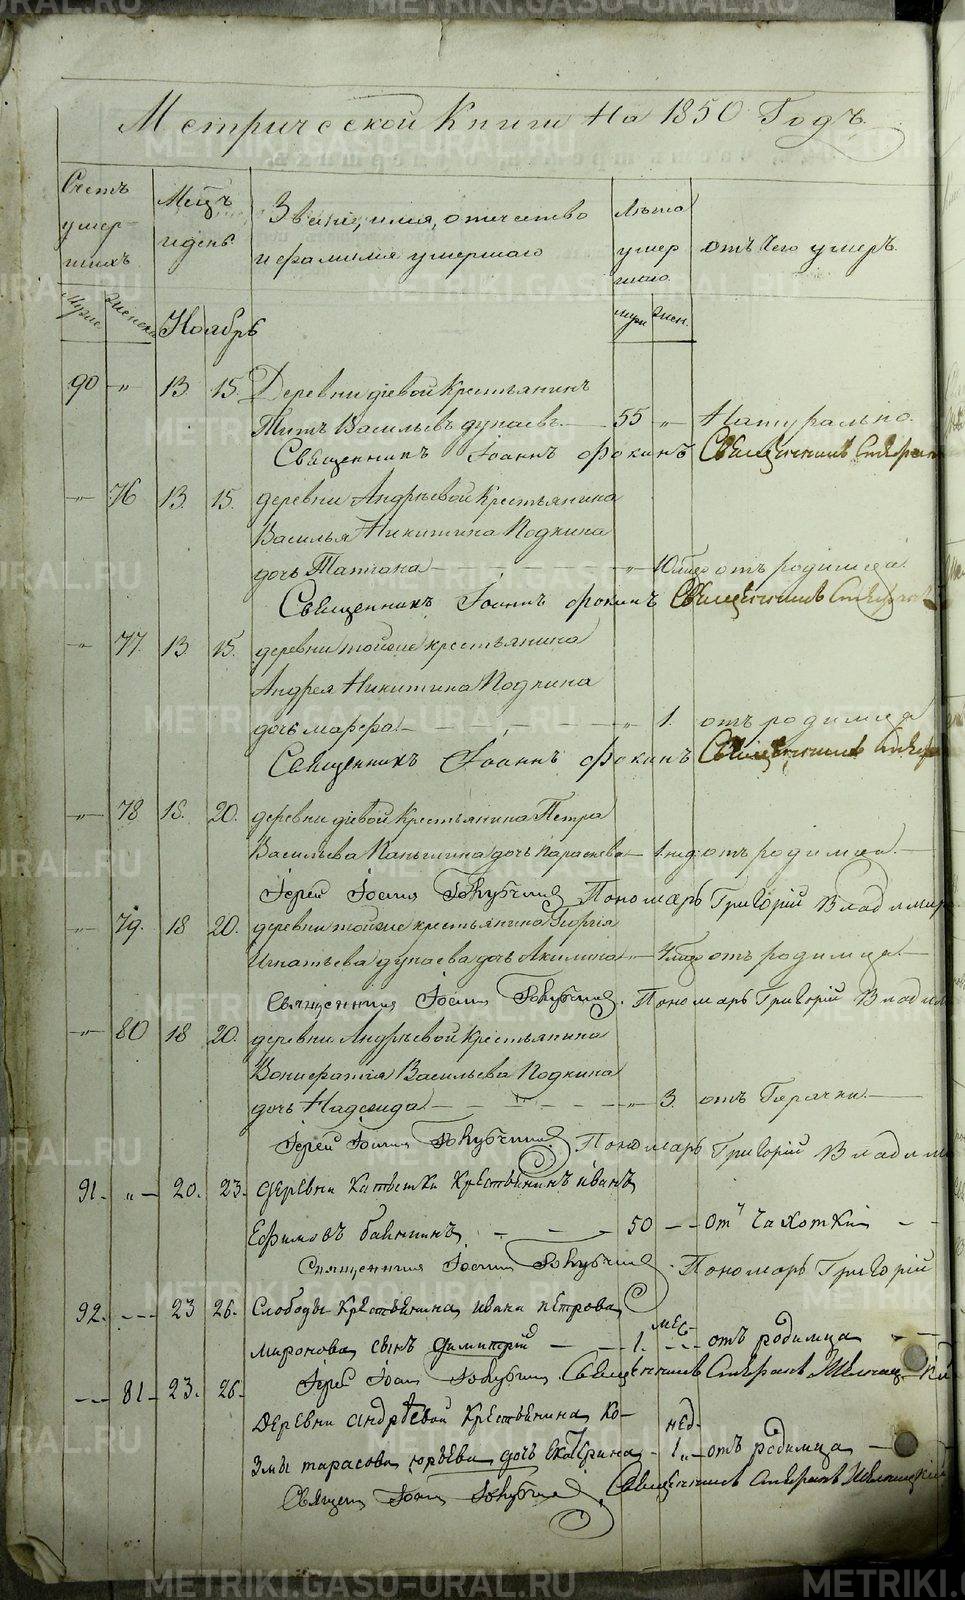 Метрической Книги На 1850 Годъ.
Счетъ умершихъ
Мѣц:ъ и день
Званіе, имя, отчество и фамилія умершаго
Лѣта умершаго.
отъ Чего умеръ.
Муже. Женска
Ноябрь
муж. жен.
90 " 13 15. Деревни діевой Крестьянинъ
Титъ Васильевъ дунаевъ. 55 " Натурально.
Священникъ Іоаннъ Фокинъ Священникъ Стефанъ
" 76 13 15. деревни Андрѣевой Крестьянина
Василья Никитина Кодкина
дочь Татіана " отъ родимца.
Священникъ Іоаннъ Фокинъ Священникъ
" 77. 13 15. деревни тойже крестьянина
Андрея Никитина Кодкина
дочь марфа. " 1. отъ родимца
Священникъ Іоаннъ Фокинъ Священникъ
" 78 18. 20. деревни діевой Крестьянина Петра
Васильева дочь Параскева 1.нед: отъ родимца.
Іерей Іоаннъ Пономарь Григорій Владимир
" 79. 18 20. деревни тойже крестьянина
Игнатьева дунаева дочь Акилина отъ родимца.
Священникъ Іоаннъ Пономарь Григорій Владим
" 80 18 20. деревни Андрѣевой Крестьянина
Вонифатія Васильева Кодкина
дочь Надежда. " 3. отъ Горячки.
Іерей Іоаннъ Пономарь Григорій Владим
91. " 20. 23. деревни Крестьянинъ иванъ
Ефимовъ 50 отъ Чахотки
Священникъ Іоаннъ Пономарь Григорій
92. 23 26. Слободы Крестьянина ивана петрова
миронова сынъ димитрій 1. мес- отъ родимца
81 23. 26. Іерей Іоан Священникъ Стефанъ
Деревни андрѣевой Крестьянина Ко-
змы тарасова юрьева дочь Екатерина нед- 1. отъ родимца
Священ Іоан Священникъ Стефанъ
METRIKI.GASO-URAL.RU